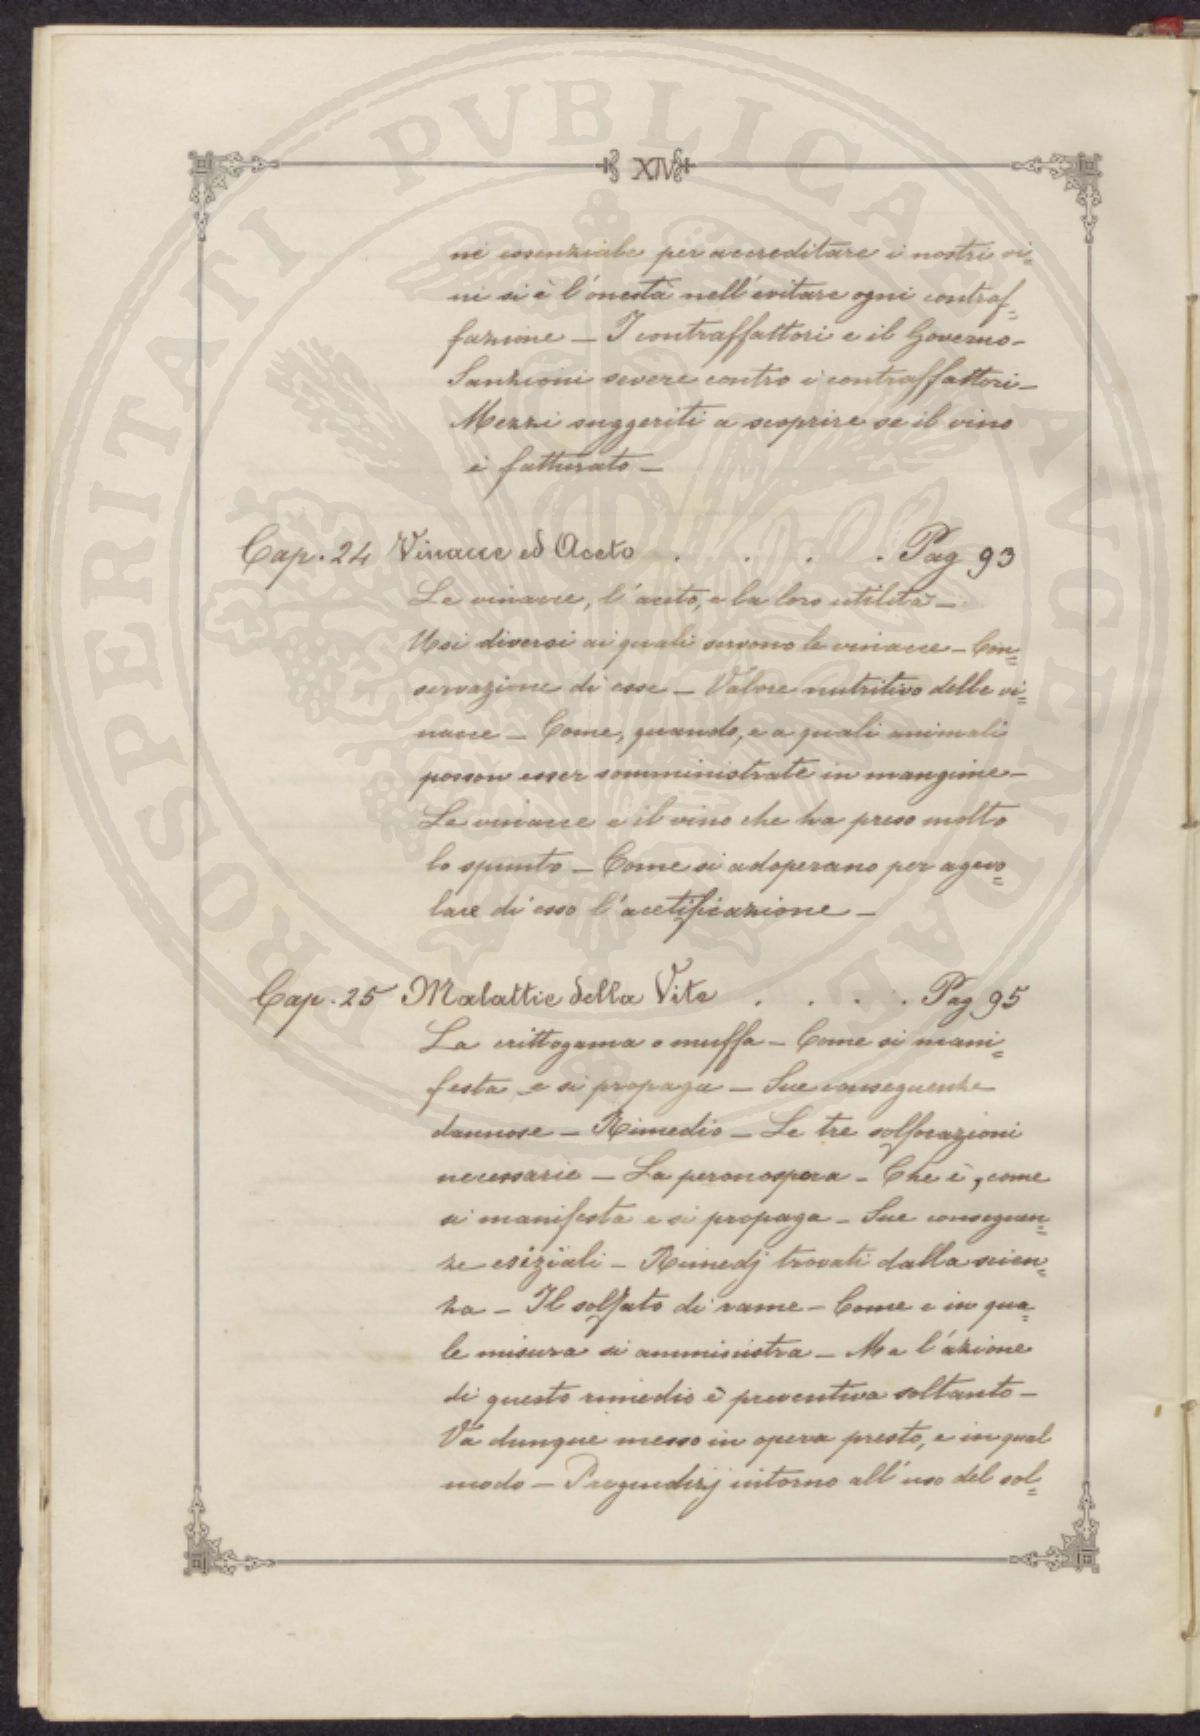 XIV
ne essenziale per accreditare i nostri vi=
ni si è l'onestà nell'evitare ogni contraf=
fazione — I contraffattori e il Governo —
Sanzioni severe contro i contraffattori —
Mezzi suggeriti a scoprire se il vino
è fatturato —
Cap. 24 Vinacce ed Aceto . . . . Pag 93
Le vinacce, l'aceto, e la loro utilità —
Usi diversi ai quali servono le vinacce — Con=
servazione di esse — Valore nutritivo delle vi=
nacce — Come, quando, e a quali animali
posson esser somministrate in mangime —
Le vinacce e il vino che ha preso molto
lo spunto — Come si adoperano per agevo=
lare di esso l'acetificazione —
Cap. 25 Malattie della Vite . . . . Pag 95
La crittogama o muffa — Come si mani=
festa e si propaga — Sue conseguenze
dannose — Rimedio — Le tre solforazioni
necessarie — La peronospora — Che è, come
si manifesta e si propaga — Sue conseguen=
ze esiziali — Rimedj trovati dalla scien=
za — Il solfato di rame — Come e in qua=
le misura si amministra — Ma l'azione
di questo rimedio è preventiva soltanto —
Va dunque messo in opera presto, e in qual
modo — Pregiudizj intorno all'uso del sol=
PROSPERITATI PUBLICAE AUGENDAE